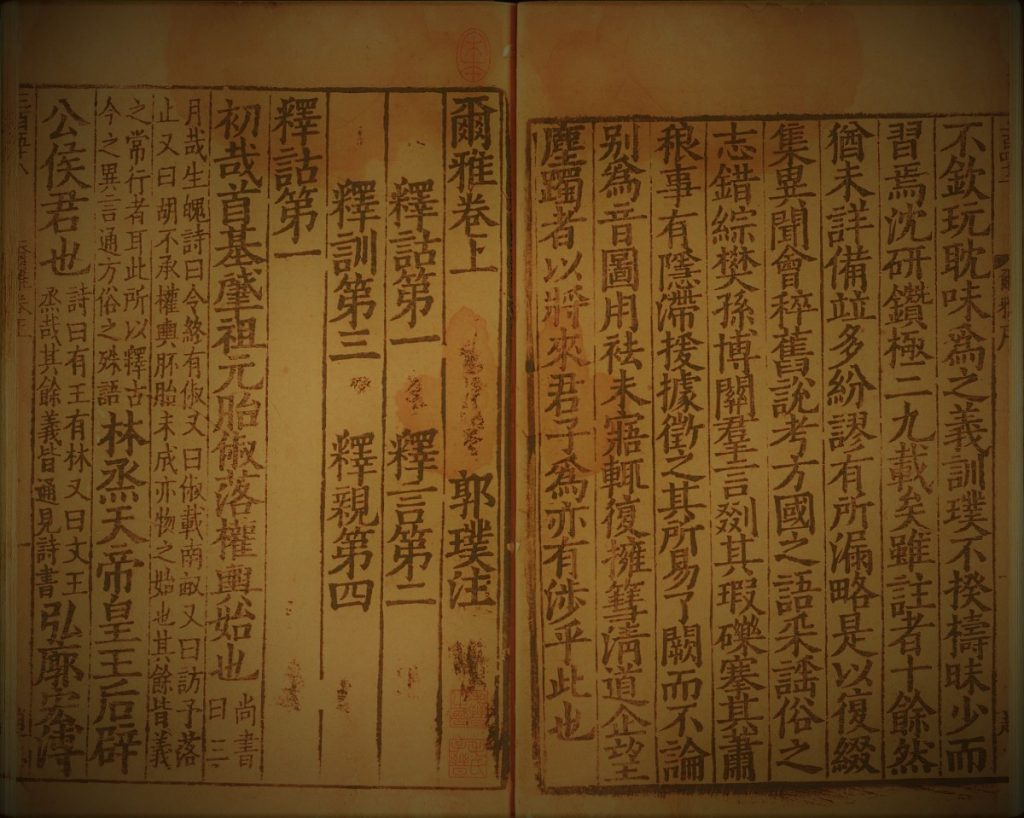 不欽玩耽味為之義訓璞不揆檮昧少而
習焉沈研鑽極二九載矣雖註者十餘然
猶未詳備竝多紛謬有所漏略是以復綴
集異聞會稡舊說考方國之語采謠俗之
志錯綜樊孫博關羣言剟其瑕礫搴其蕭
稂事有隱滯援據徵之其所易了闕而不論
別為音圖用祛未寤輒復擁篲清道企望
塵躅者以將來君子為亦有涉乎此也
爾雅卷上 郭璞注
釋詁第一 釋言第二
釋訓第三 釋親第四
釋詁第一
初哉首基肈祖元胎俶落權輿始也 尚書曰三
月哉生魄詩曰令終有俶又曰俶載南畝又曰訪予落
止又曰胡不承權輿胚胎未成亦物之始也其餘皆義
之常行者耳此所以釋古
今之異言通方俗之殊語 林烝天帝皇王后辟
公侯君也 詩曰有王有林又曰文王
烝哉其餘義皆通見詩書 弘廓宏溥